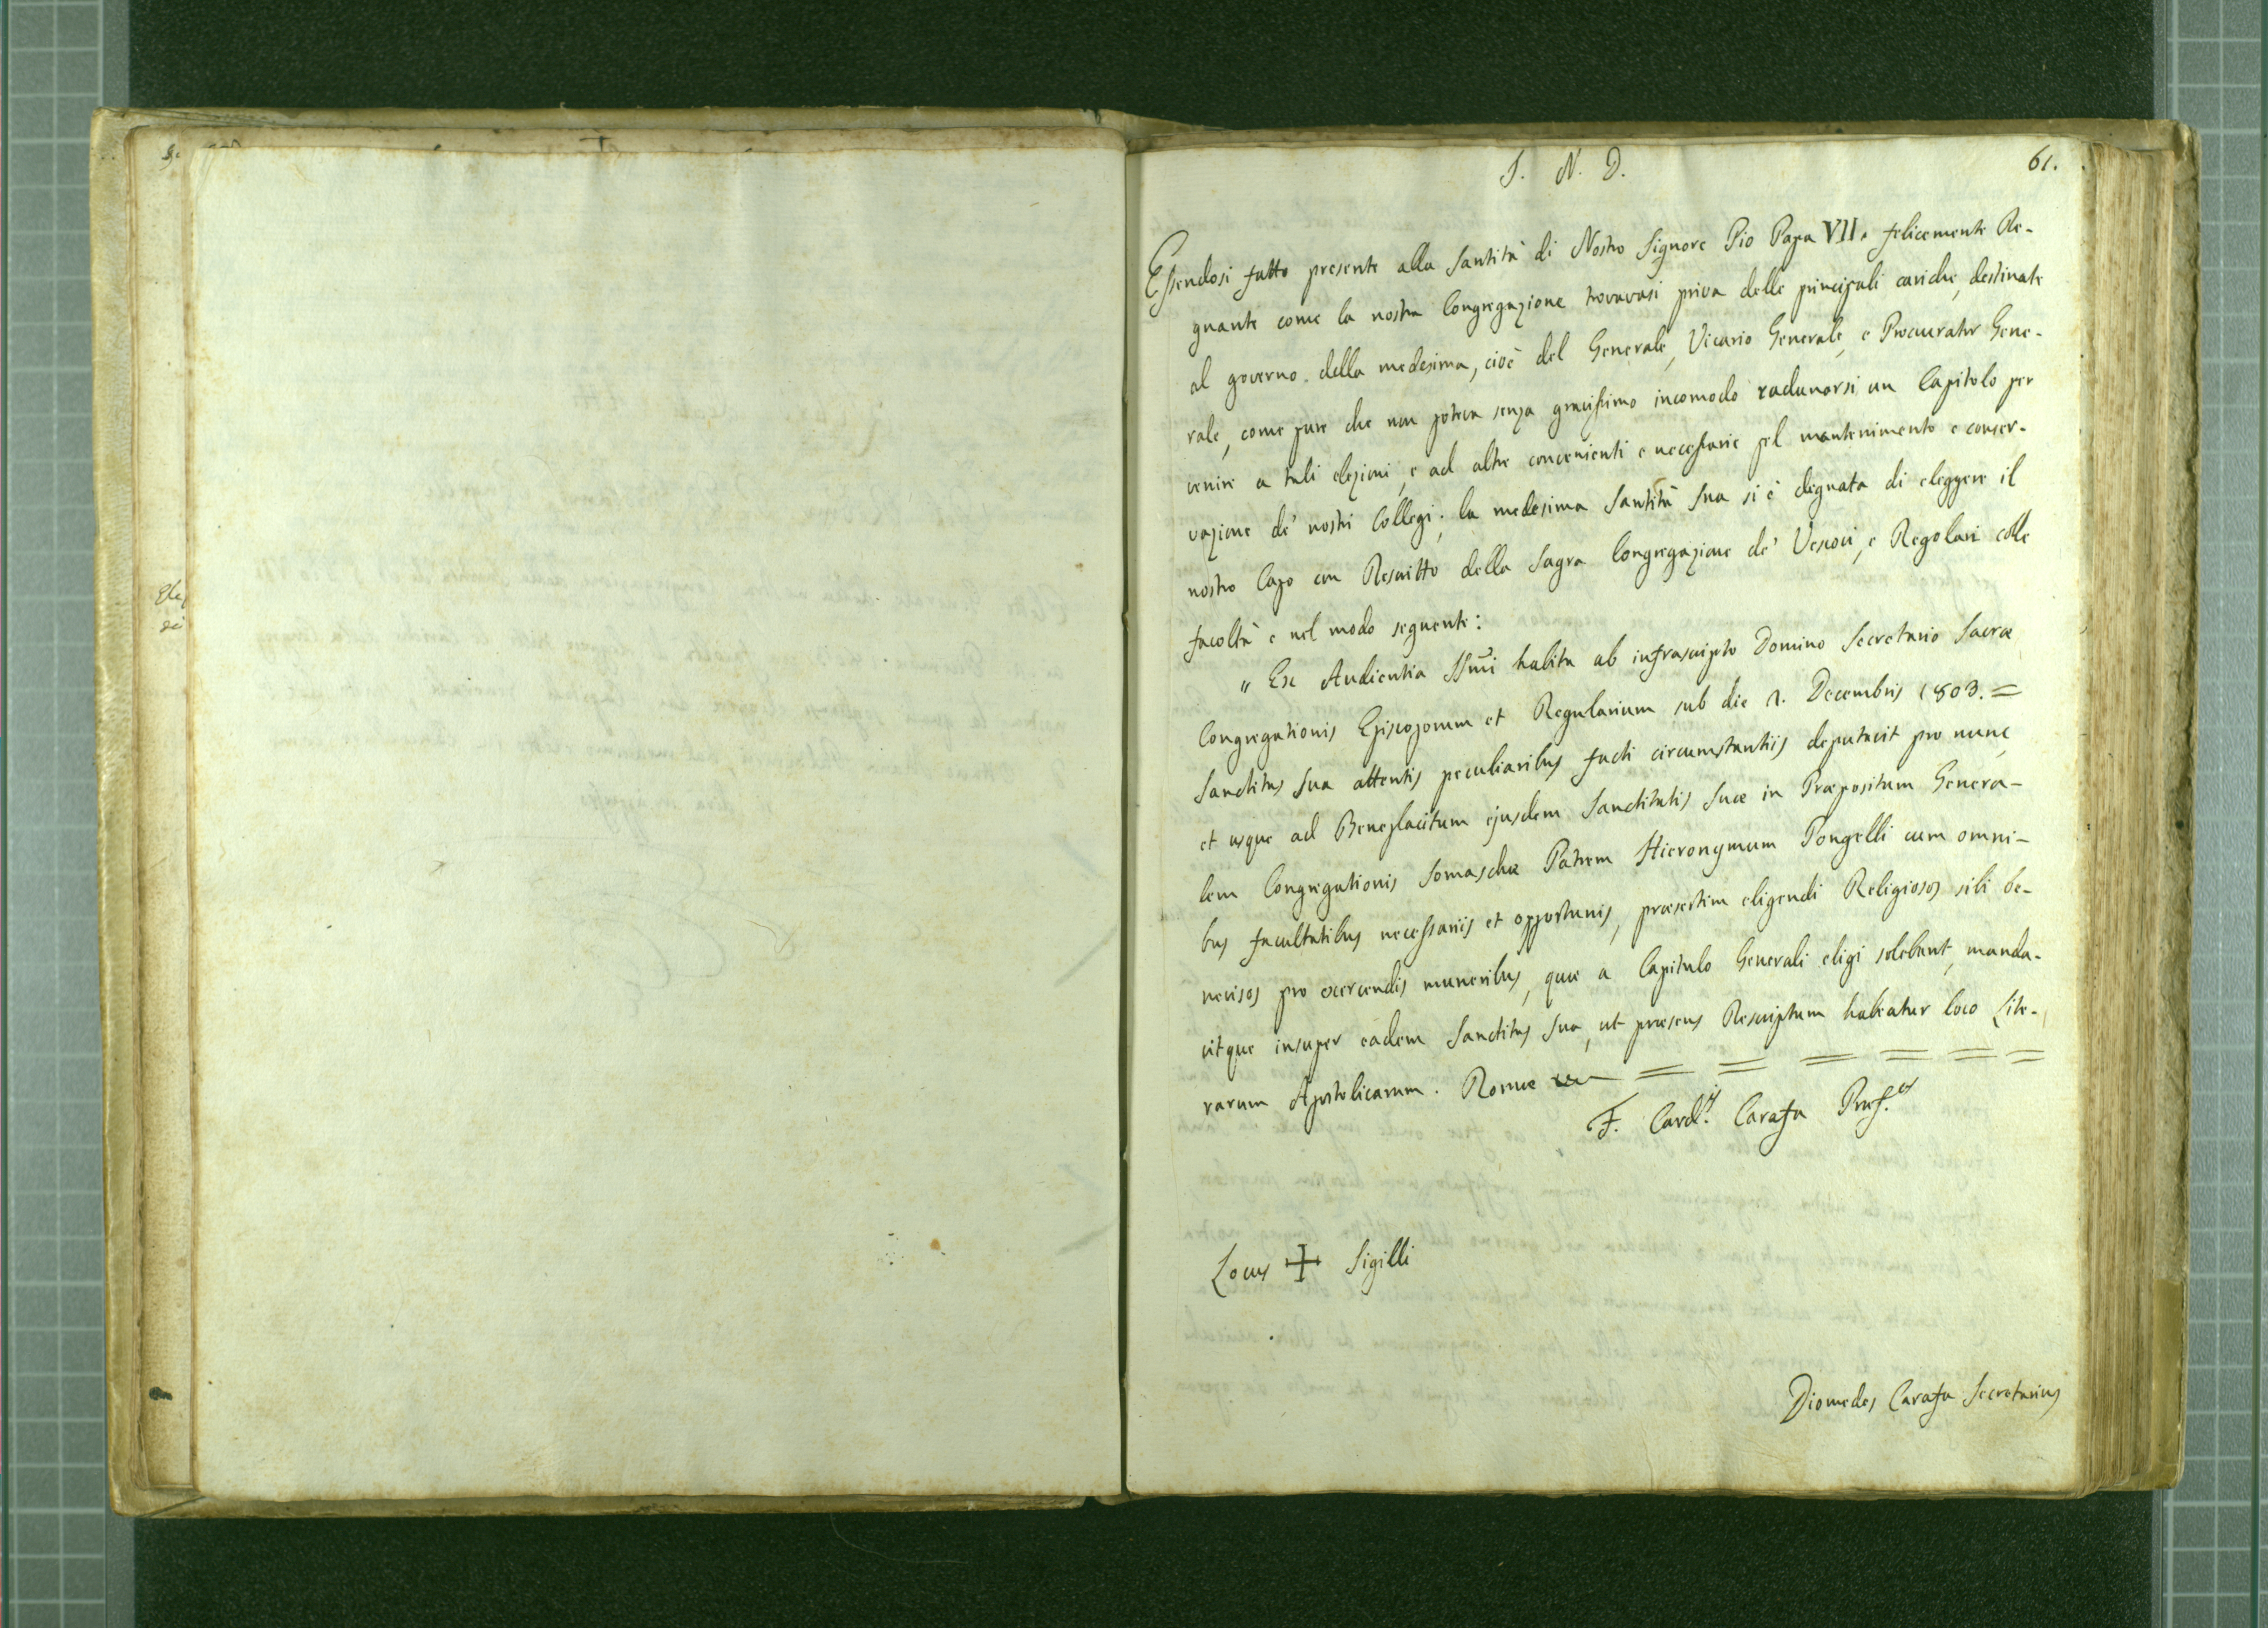 I. N. D.
61.
Essendosi fatto presente alla Santità di Nostro Signore Pio Papa VII. felicemente Re-
gnante come la nostra Congregazione trovavasi priva delle principali cariche, destinate
al governo della medesima, cioè del Generale, Vicario Generale, e Procurator Gene-
rale, come pure che non poteva senza gravissimo incomodo radunarsi un Capitolo per
venire a tali elezioni, e ad altre convenienti e necessarie pel mantenimento e conser-
vazione de' nostri Collegi; la medesima Santità Sua si è degnata di eleggere il
nostro Capo con Rescritto della Sagra Congregazione de' Vescovi, e Regolari colle
facoltà e nel modo seguente:
" Ex Audientia SSmi habita ab infrascripto Domino Secretario Sacræ
Congregationis Episcoporum et Regularium sub die 2. Decembris 1803. =
Sanctitas Sua attentis peculiaribus facti circumstantiis deputavit pro nunc,
et usque ad Beneplacitum ejusdem Sanctitatis Suæ in Præpositum Genera-
lem Congregationis Somaschæ Patrem Hieronymum Pongelli cum omni-
bus facultatibus necessariis et opportunis, præsertim eligendi Religiosos sibi be-
nevisos pro exercendis muneribus, quæ a Capitulo Generali eligi solebant, manda-
vitque insuper eadem Sanctitas Sua, ut præsens Rescriptum habeatur loco Lite-
rarum Apostolicarum. Romæ = = = = = =
F. Card.lis Carafa Præf.us
Locus + Sigilli
Diomedes Carafa Secretarius